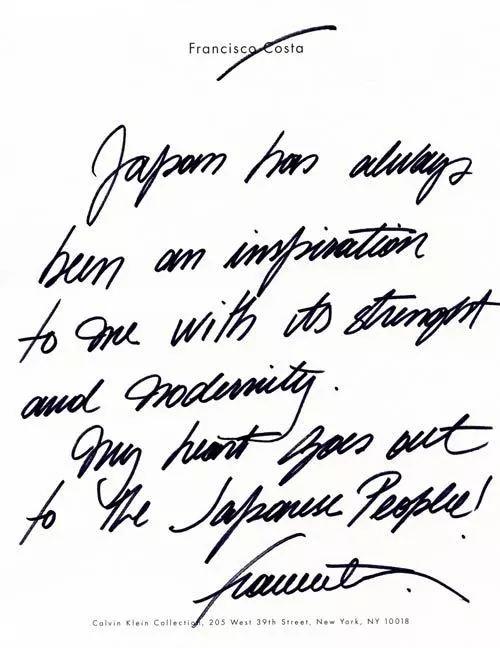 Francisco Costa
Japan has always
been an inspiration
to me with its strenght
and modernity.
My heart goes out
to the Japanese People!
Calvin Klein Collection, 205 West 39th Street, New York, NY 10018